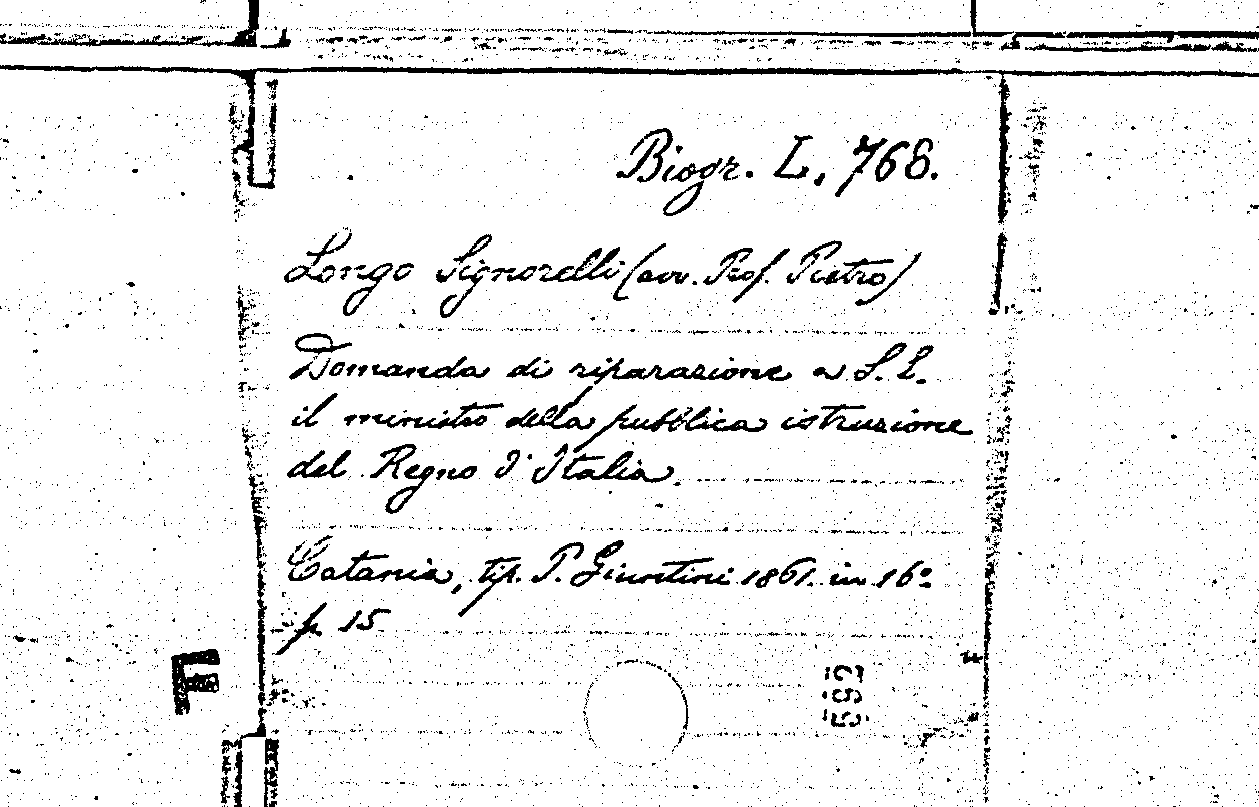 Biogr. L, 768.
Longo Signorelli (avv. Prof. Pietro)
Domanda di riparazione a S. E.
il ministro della pubblica istruzione
del Regno d'Italia.
Catania, tip. P. Giuntini 1861. in 16º
p 15